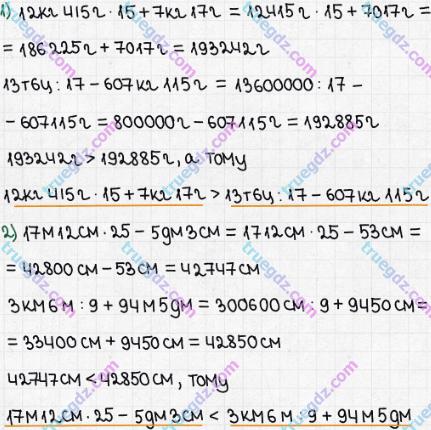 1) 12кг 415г · 15 + 7кг 17г = 12415г · 15 + 7017г =
= 186225г + 7017г = 193242г
13т6ц : 17 - 607кг 115г = 13600000 : 17 -
- 607115г = 800000г - 607115г = 192885г
193242г > 192885г, а тому
12кг 415г · 15 + 7кг 17г > 13т6ц : 17 - 607кг 115г
2) 17м 12см · 25 - 5дм 3см = 1712см · 25 - 53см =
= 42800см - 53см = 42747см
3км 6м : 9 + 94м 5дм = 300600см : 9 + 9450см =
= 33400см + 9450см = 42850см
42747см < 42850см, тому
17м 12см · 25 - 5дм 3см < 3км 6м : 9 + 94м 5дм
truegdz.com